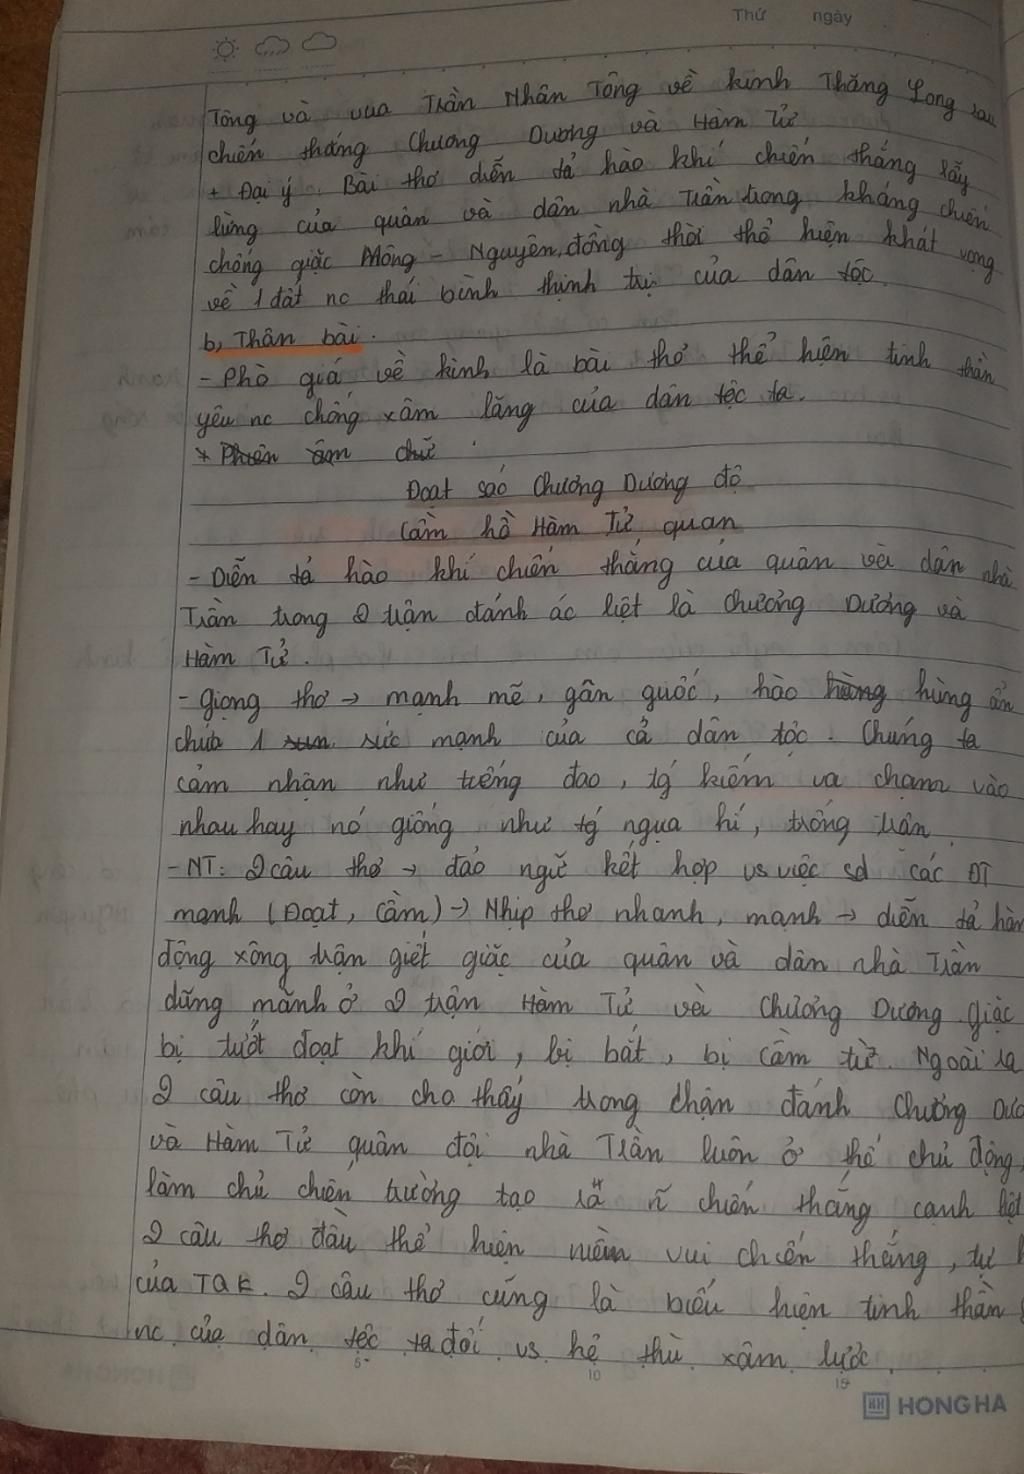 Thứ ngày
Tông và vua Trần Nhân Tông về kinh Thăng Long sau
chiến thắng Chương Dương và Hàm Tử
+ Đại ý. Bài thơ diễn tả hào khí chiến thắng lẫy
lừng của quân và dân nhà Trần trong kháng chiến
chống giặc Mông - Nguyên, đồng thời thể hiện khát vọng
về 1 đất nc thái bình thịnh trị của dân tộc.
b, Thân bài.
- Phò giá về kinh là bài thơ thể hiện tinh thần
yêu nc chống xâm lăng của dân tộc ta.
* Phiên âm chữ
Đoạt sáo Chương Dương độ
Cầm hồ Hàm Tử quan
- Diễn tả hào khí chiến thắng của quân và dân nhà
Trần trong 2 trận đánh ác liệt là Chương Dương và
Hàm Tử.
- Giọng thơ → mạnh mẽ, gân guốc, hào hùng ẩn
chứa 1 sức mạnh của cả dân tộc. Chúng ta
cảm nhận như tiếng đao, tg kiếm va chạm vào
nhau hay nó giống như tg ngựa hí, trống trận
- NT: 2 câu thơ → đảo ngữ kết hợp vs việc sd các ĐT
mạnh (Đoạt, Cầm) → Nhịp thơ nhanh, mạnh → diễn tả hàn
động xông trận giết giặc của quân và dân nhà Trần
dũng mãnh ở 2 trận Hàm Tử và Chương Dương. Giặc
bị tướt đoạt khí giới, bị bắt, bị cầm từ. Ngoài ra
2 câu thơ còn cho thấy trong thận đánh Chương Dươ
và Hàm Tử quân đội nhà Trần luôn ở thế chủ động,
làm chủ chiến trường tạo ra chiến thắng oanh liệt
2 câu thơ đầu thể hiện niềm vui chiến thắng, tự
của TQK. 2 câu thơ cũng là biểu hiện tinh thần
nc của dân tộc ta đối vs kẻ thù xâm lược.
5 10 15
HH HONG HA